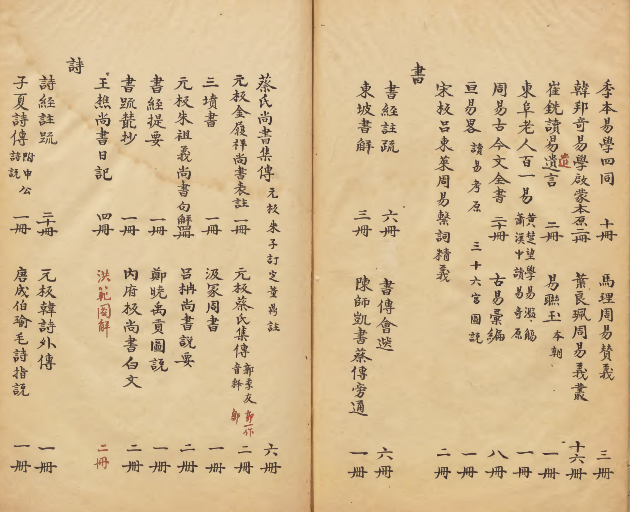 季本易學四同 十冊 馬理周易贊義 三冊
韓邦奇易學啟蒙本原 二冊 葉良珮周易義叢 十六冊
崔銑讀易遺言 二冊 易聯玉 本朝 一冊
遺
東阜老人百一易 黃楚望學易濫觴 蕭漢中讀易奇原 一冊
周易古今文全書 二十冊 古易彙編 八冊
亘易畧 讀易考原 三十六宮圖說 一冊
宋板呂東萊周易繫詞精義 二冊
書
書經註疏 六冊 書傳會選 六冊
東坡書解 三冊 陳師凱書蔡傳旁通 一冊
蔡氏尚書集傳 元板朱子訂定董鼎註 六冊
元板金履祥尚書表註 一冊 元板蔡氏集傳 鄒季友音釋 鄒一作鄭 二冊
三墳書 一冊 汲冢周書 一冊
元板朱祖義尚書句解 四冊 呂柟尚書說要 二冊
書經提要 一冊 鄭曉禹貢圖說 一冊
書疏叢抄 一冊 內府板尚書白文 二冊
王樵尚書日記 四冊 洪範圖解 二冊
詩
詩經註疏 二十冊 元板韓詩外傳 一冊
子夏詩傳 附申公詩說 一冊 唐成伯瑜毛詩指說 一冊